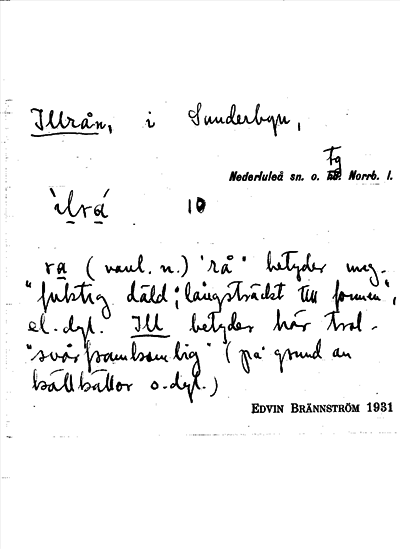 Illrån, i Sunderbyn,
tg
Nederluleå sn. o. hd. Norrb. l.
`ilrá 10
ra (vanl. n.) 'rå' betyder meg.
"fuktig däld; långsträckt till formen",
el. dyl. Ill betyder här trol.
"svårframkomlig" (på grund av
källkällor o. dyl.)
EDVIN BRÄNNSTRÖM 1931